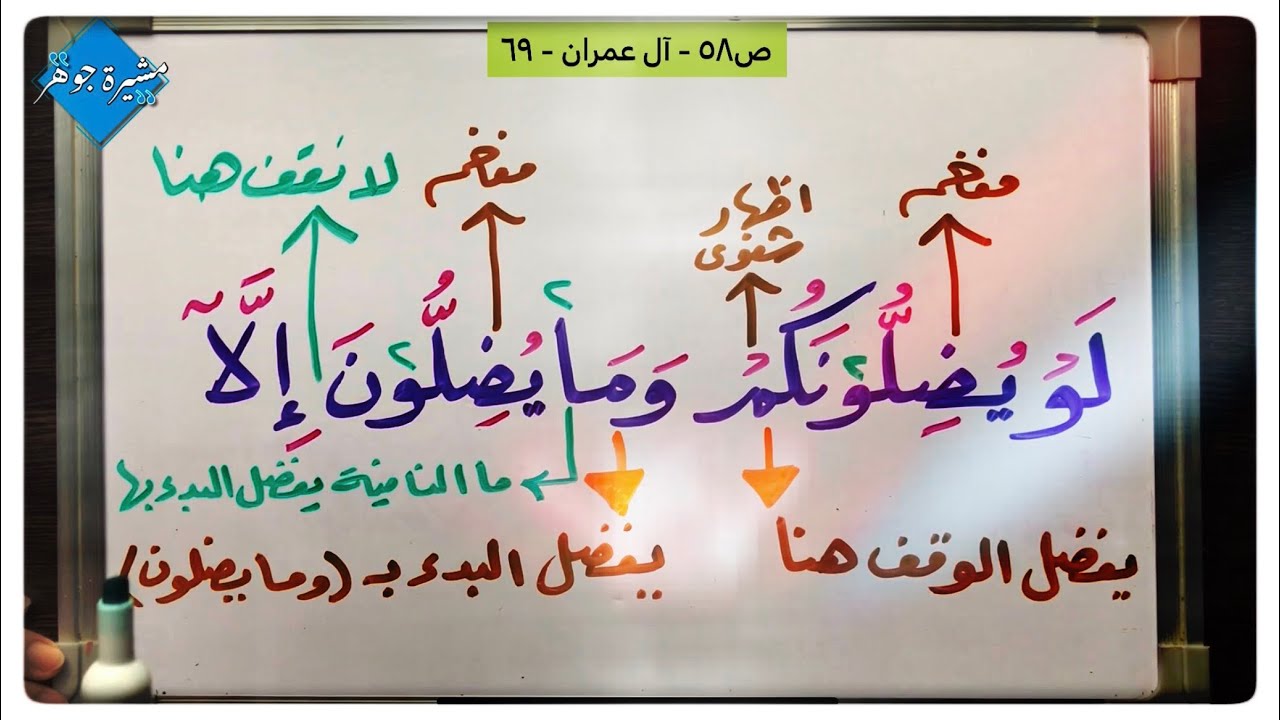 ص٥٨ - آل عمران - ٦٩
مشيرة جوهر
مفخم
اظهار شفوى
مفخم
لا نقف هنا
٢
لَوْ يُضِلُّونَكُمْ وَمَا يُضِلُّونَ إِلَّآ
٢ ٢
ما النافية يفضل البدء بها
يفضل الوقف هنا
يفضل البدء بـ (وما يضلون)